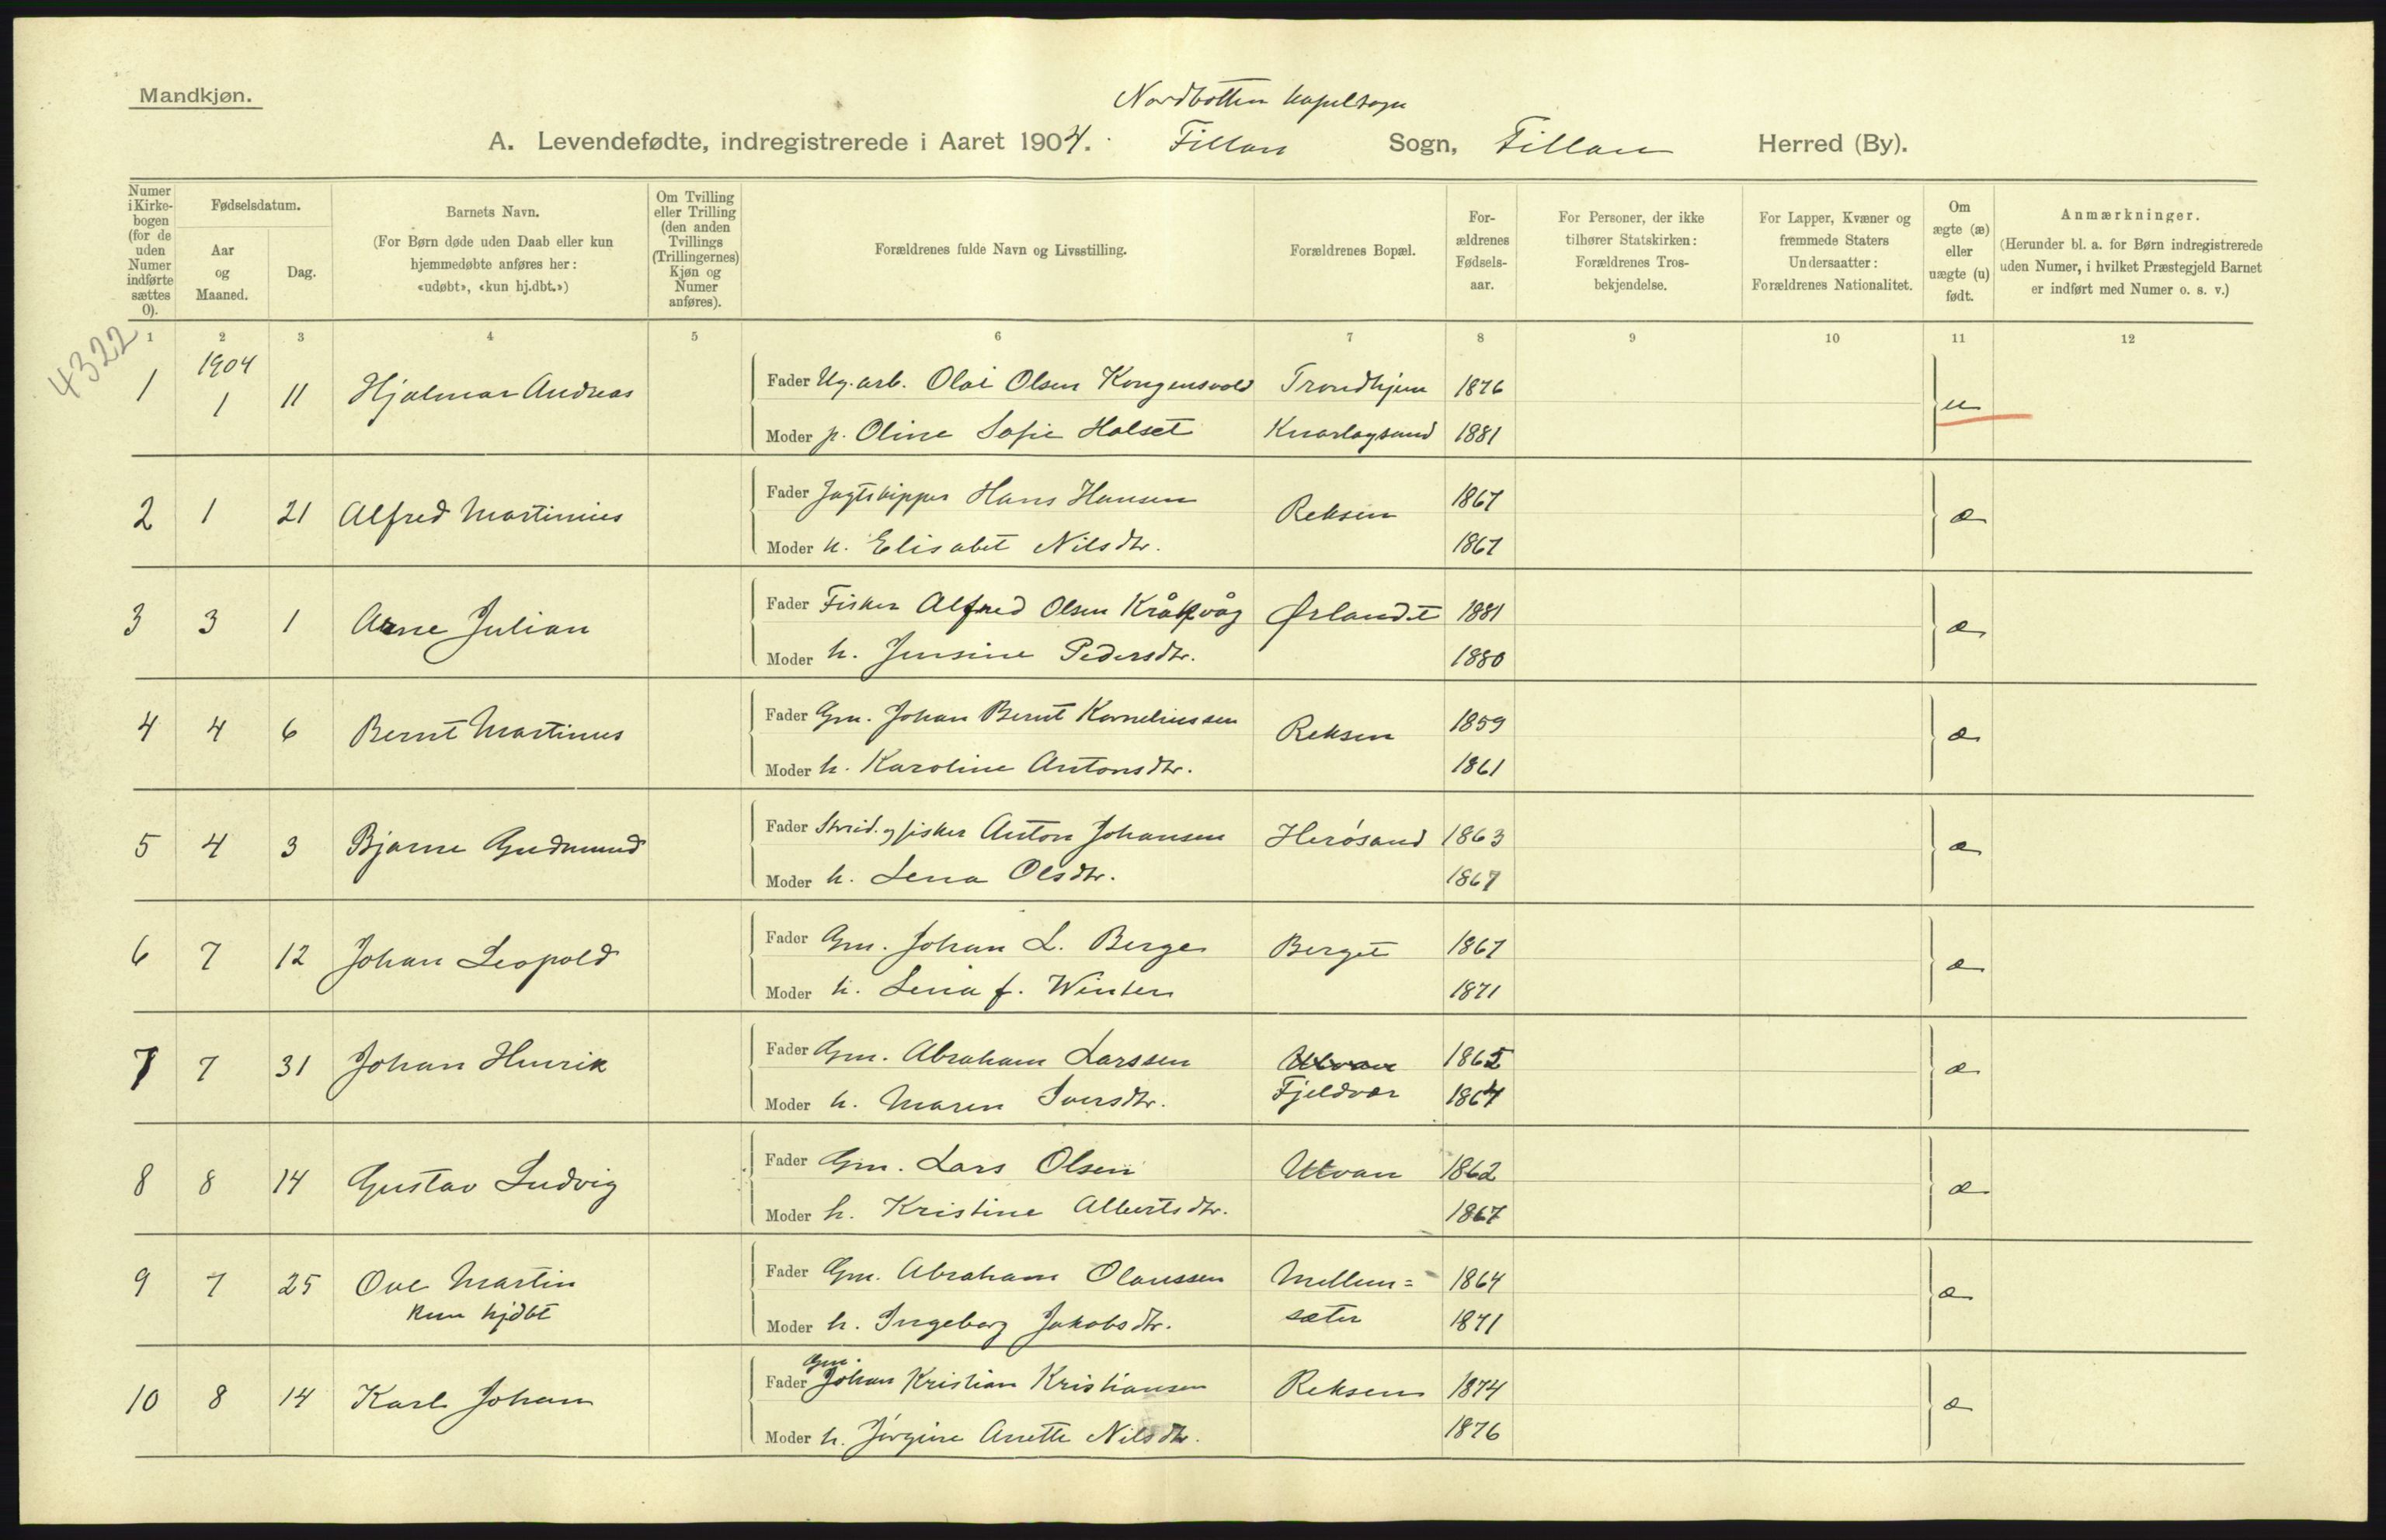 Mandkjøn.
Nordbotten kapelsogn
A. Levendefødte, indregistrerede i Aaret 1904. Fillan Sogn, Fillan Herred (By).
Numer i Kirkebogen (for de uden Numer indførte sættes 0).
Fødselsdatum.
Aar og Maaned.
Dag.
Barnets Navn.
(For Børn døde uden Daab eller kun hjemmedøbte anføres her: «udøbt», «kun hj.dbt.»)
Om Tvilling eller Trilling (den anden Tvillings (Trillingernes) Kjøn og Numer anføres).
Forældrenes fulde Navn og Livsstilling.
Forældrenes Bopæl.
For-ældrenes Fødsels-aar.
For Personer, der ikke tilhører Statskirken: Forældrenes Tros-bekjendelse.
For Lapper, Kvæner og fremmede Staters Undersaatter: Forældrenes Nationalitet.
Om ægte (æ) eller uægte (u) født.
Anmærkninger.
(Herunder bl. a. for Børn indregistrerede uden Numer, i hvilket Præstegjeld Barnet er indført med Numer o. s. v.)
1 2 3 4 5 6 7 8 9 10 11 12
4322
1904
1 1 11 Hjalmar Andreas Fader Ug. arb. Olai Olsen Kongensvold Trondhjem 1876 u
Moder p. Oline Sofie Holset Knarlagsund 1881
2 1 21 Alfred Martinius Fader Jagtskipper Hans Hansen Reksen 1867 æ
Moder h. Elisabet Nilsdtr. 1867
3 3 1 Arne Julian Fader Fisker Alfred Olsen Kråkvåg Ørlandet 1881 æ
Moder h. Jensine Pedersdtr. 1880
4 4 6 Bernt Martinus Fader Gm. Johan Bernt Korneliussen Reksen 1859 æ
Moder h. Karoline Antonsdtr. 1861
5 4 3 Bjarne Gudmund Fader Strid. og fisker Anton Johansen Herøsund 1863 æ
Moder h. Lena Olsdtr. 1867
6 7 12 Johan Leopold Fader Gm. Johan L. Berge Berget 1867 æ
Moder h. Lena f. Winter 1871
7 7 31 Johan Henrik Fader Gm. Abraham Larssen Utvan 1865 æ
Moder h. Maren Iversdtr. Fjeldvær 1864
8 8 14 Gustav Ludvig Fader Gm. Lars Olsen Utvan 1862 æ
Moder h. Kristine Albertsdtr. 1867
9 7 25 Ove Martin Fader Gm. Abraham Olaussen Mellem= 1864 æ
kun hjdbt Moder h. Ingeborg Jakobsdtr. sæter 1871
Gm.
10 8 14 Karl Johan Fader Johan Kristian Kristiansen Reksen 1874 æ
Moder h. Jørgine Anette Nilsdtr. 1876